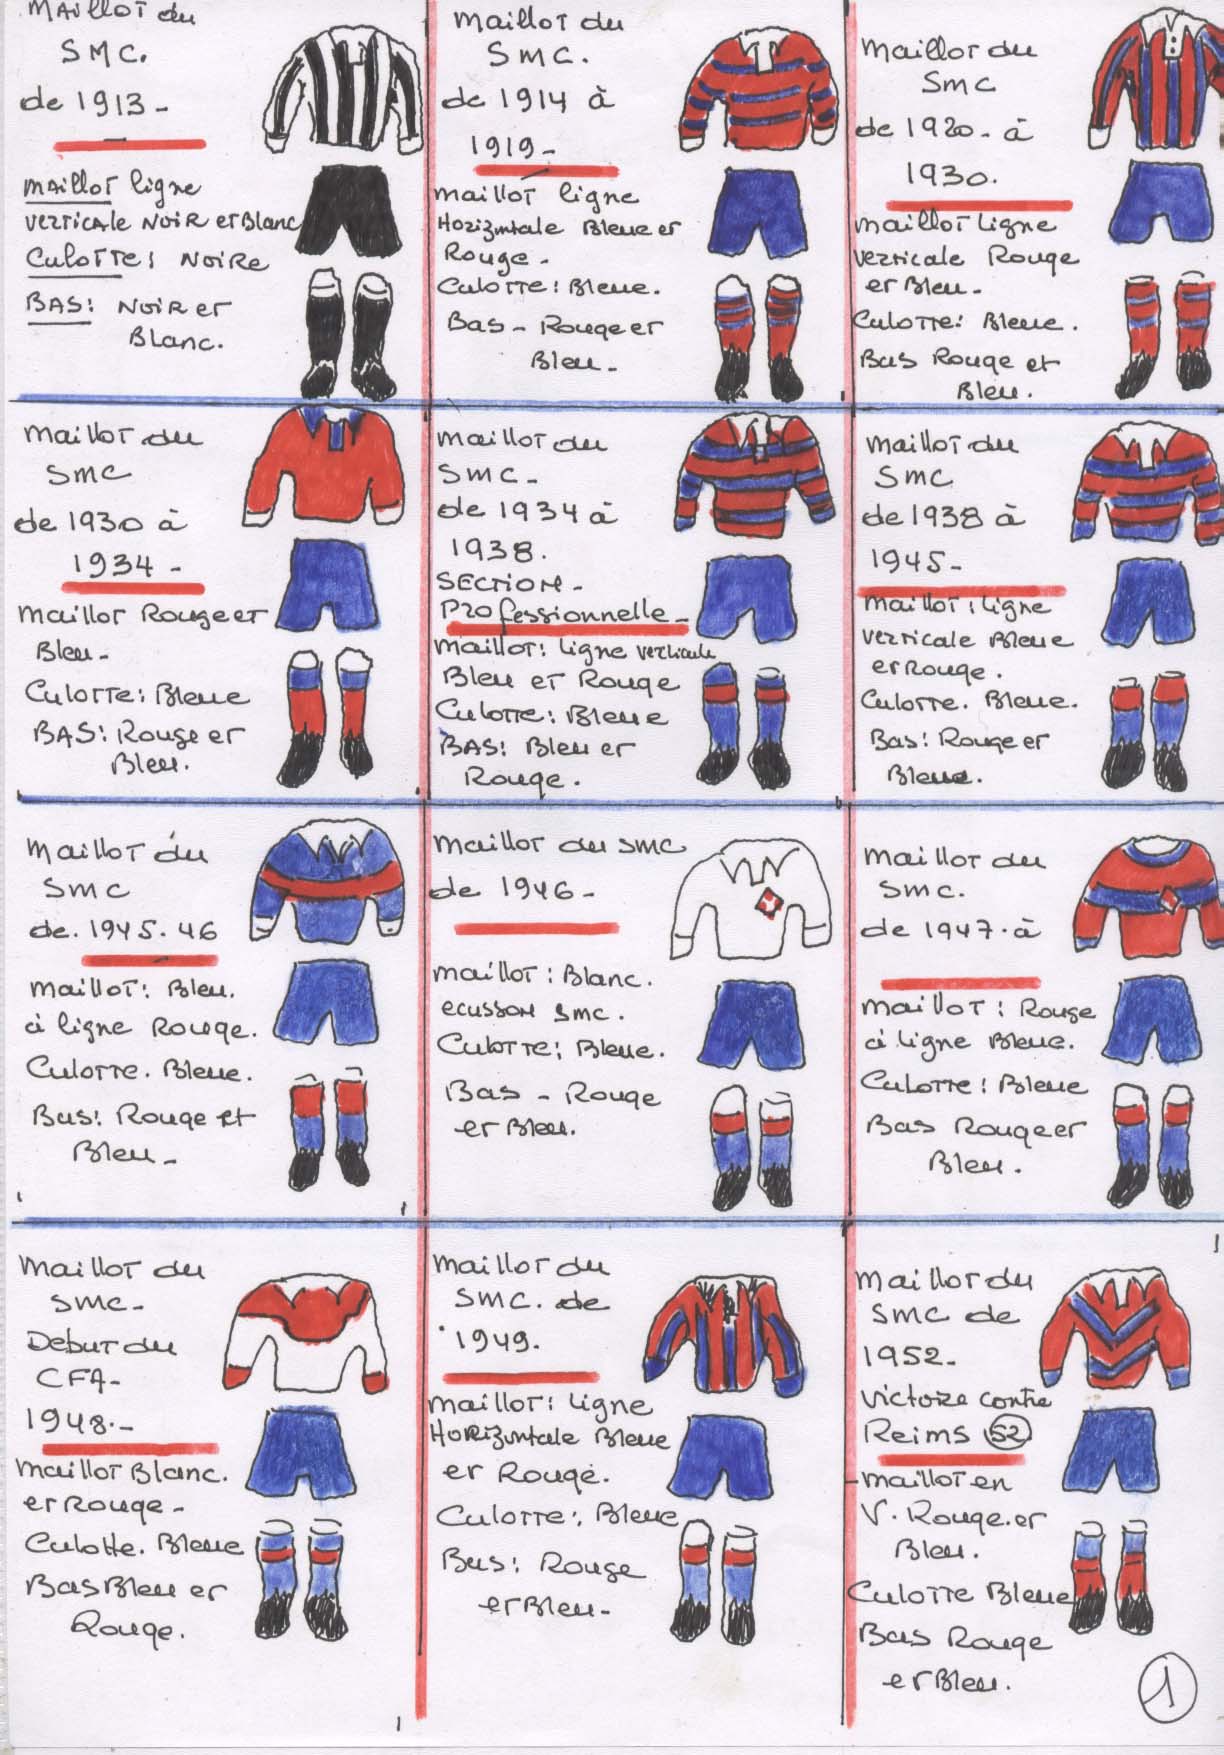 Maillot du
SMC.
de 1913-
Maillot ligne
verticale Noir et Blanc
Culotte: Noire
BAS: Noir et
Blanc.
Maillot du
SMC.
de 1914 à
1919-
Maillot ligne
Horizontale Bleue et
Rouge.
Culotte: Bleue.
Bas - Rouge et
Bleu.
Maillot du
SMC
de 1920 - à
1930.
Maillot ligne
verticale Rouge
et Bleu.
Culotte: Bleue.
Bas Rouge et
Bleu.
Maillot du
SMC
de 1930 à
1934 -
Maillot Rouge et
Bleu.
Culotte: Bleue
BAS: Rouge et
Bleu.
Maillot du
SMC -
de 1934 à
1938.
SECTION -
Professionnelle -
Maillot: ligne verticale
Bleu et Rouge
Culotte: Bleue
BAS: Bleu et
Rouge.
Maillot du
SMC
de 1938 à
1945-
Maillot: ligne
verticale Bleue
et Rouge.
Culotte. Bleue.
Bas: Rouge et
Bleue.
Maillot du
SMC
de. 1945. 46
Maillot: Bleu.
à ligne Rouge.
Culotte. Bleue.
Bas: Rouge et
Bleu -
Maillot du SMC
de 1946 -
Maillot: Blanc.
ecusson SMC.
Culotte: Bleue.
Bas - Rouge
et Bleu.
Maillot du
SMC.
de 1947. à
Maillot: Rouge
à ligne Bleue.
Culotte: Bleue
Bas Rouge et
Bleu.
Maillot du
SMC-
Debut du
CFA-
1948.-
Maillot Blanc.
et Rouge -
Culotte. Bleue
Bas Bleu et
Rouge.
Maillot du
SMC. de
1949.
Maillot: ligne
Horizontale Bleue
et Rouge.
Culotte: Bleue
Bas: Rouge
et Bleu -
Maillot du
SMC de
1952-
Victoire contre
Reims 52
Maillot en
V. Rouge. et
Bleu.
Culotte Bleue
Bas Rouge
et Bleu.
1